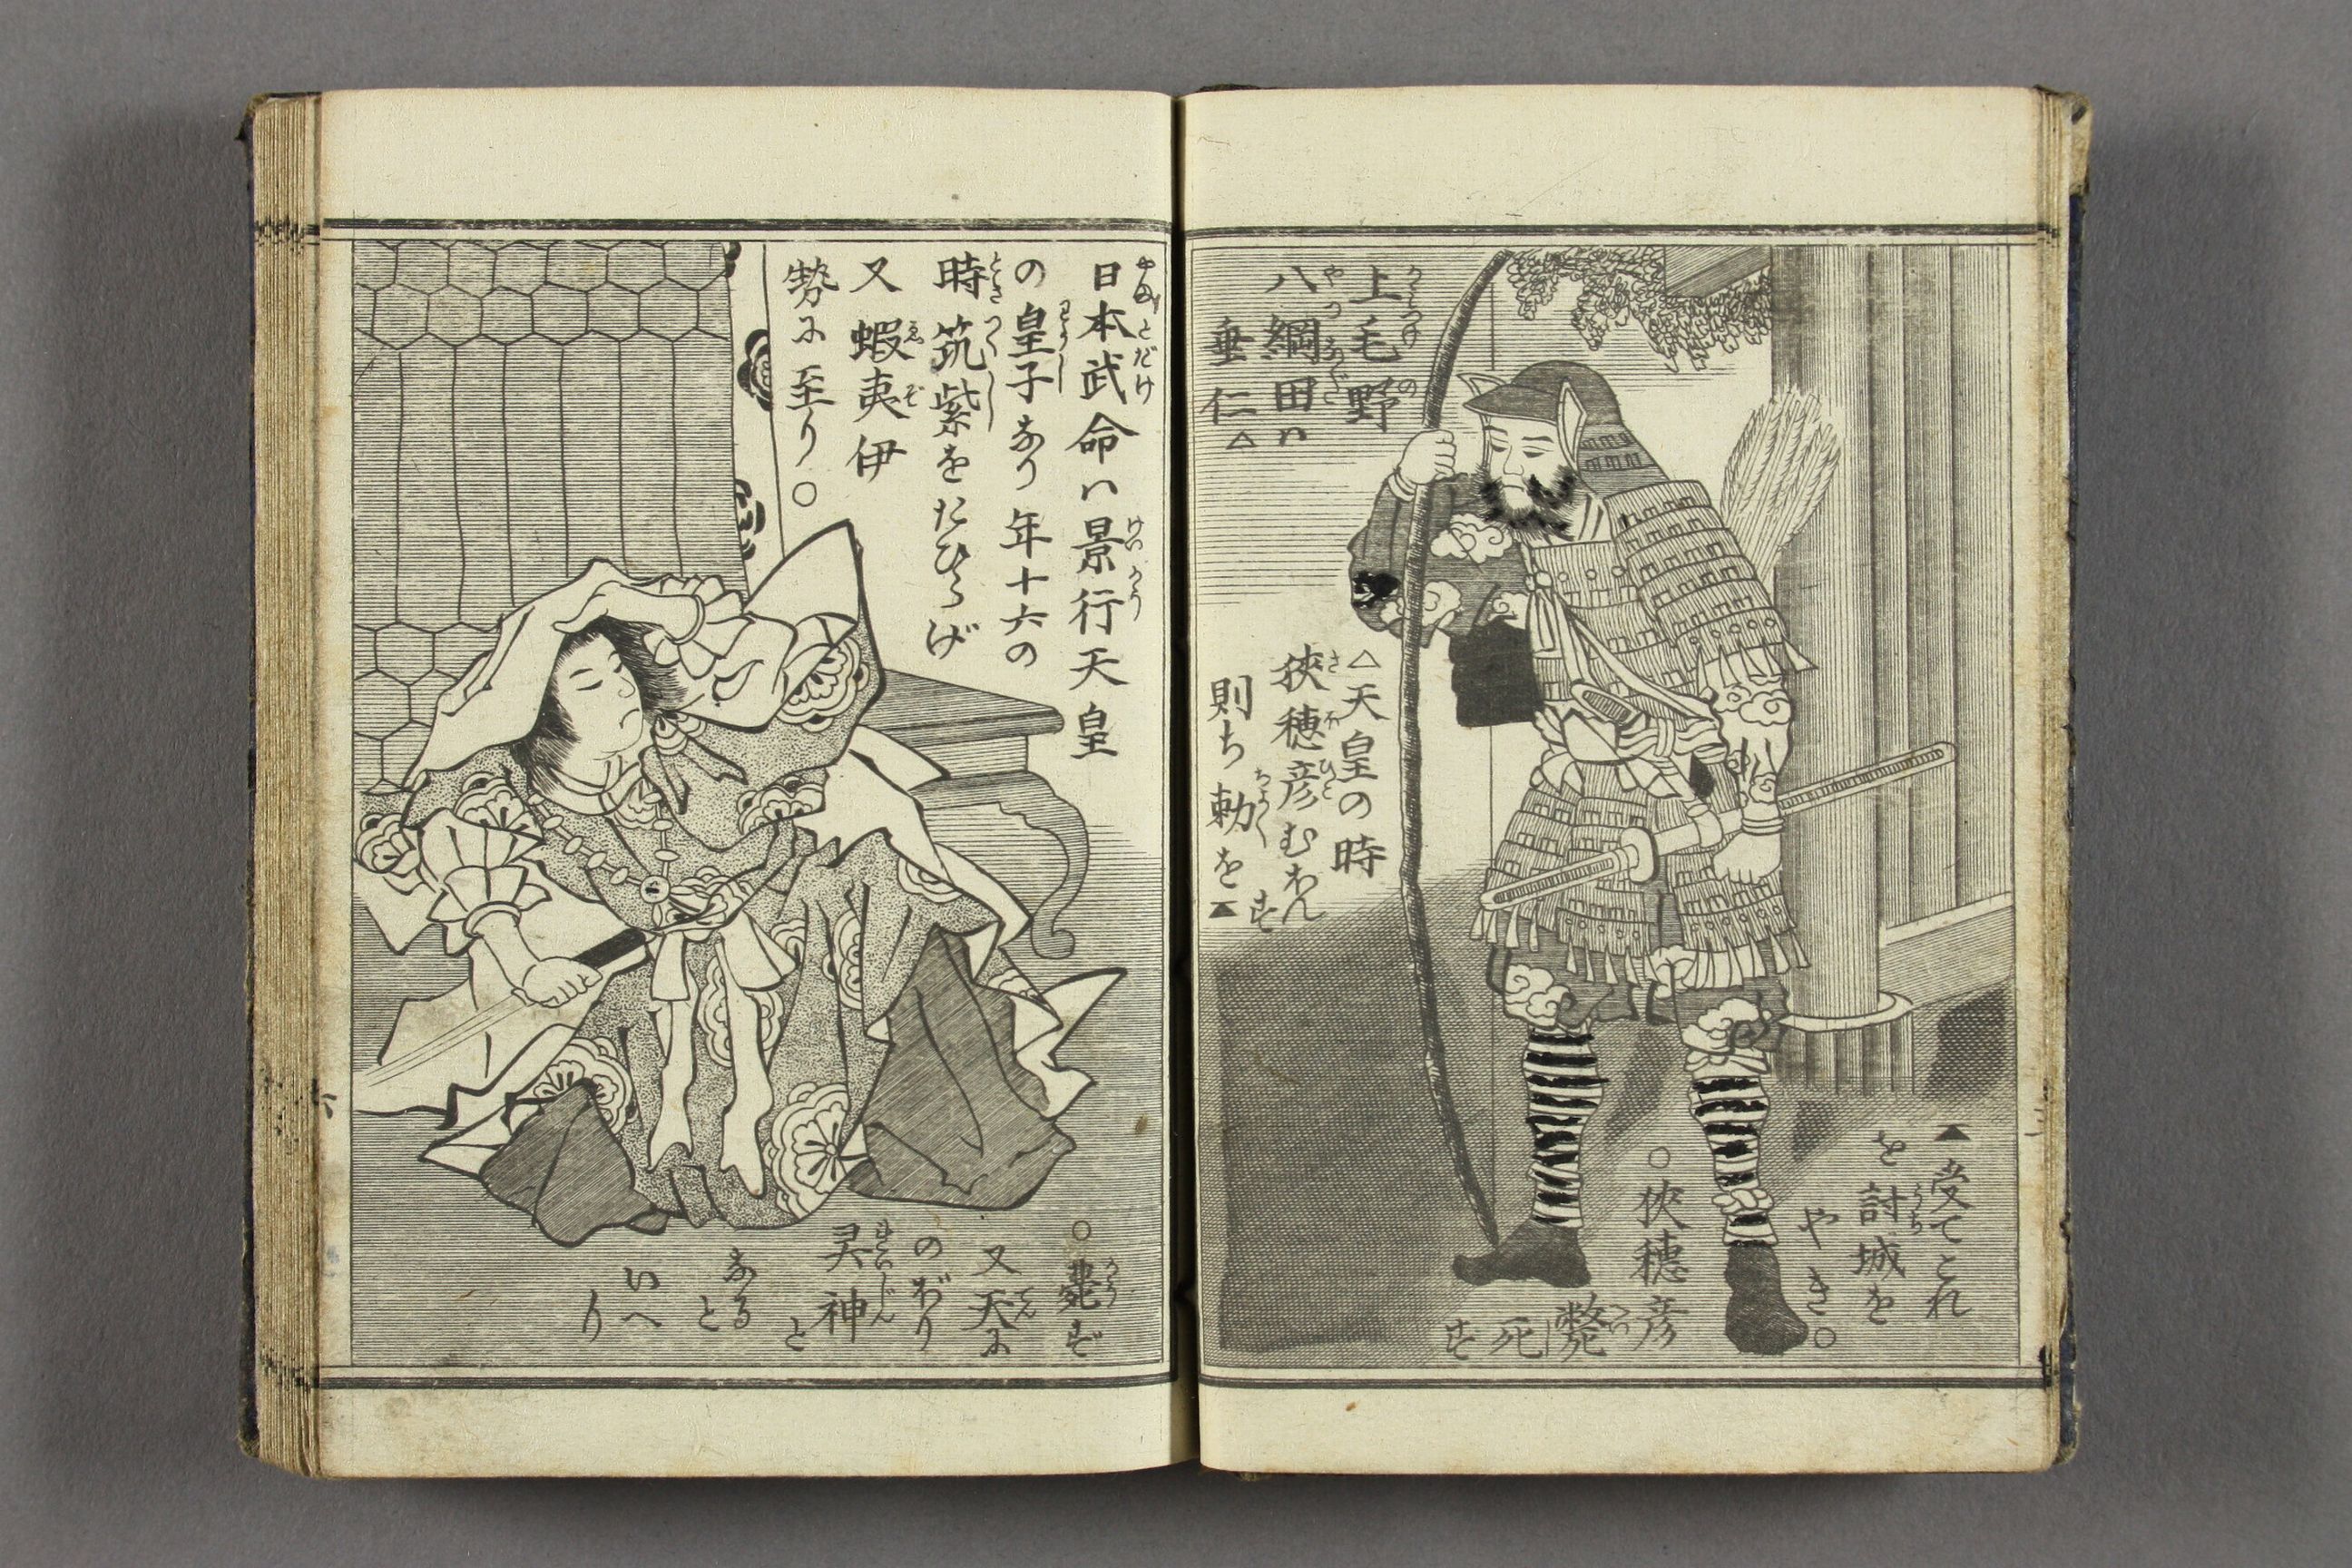 上毛野
八綱田ハ
垂仁△
△天皇の時
狹穂彦むほんす
則ち勅を▲
▲受てこれ
を討城を
やき○
○狹穂彦
斃死
す
日本武命ハ景行天皇
の皇子なり年十六の
時筑紫をたひらげ
又蝦夷伊
勢に至り○
○薨ず
又天に
のぼり
灵神と
なると
いへ
り